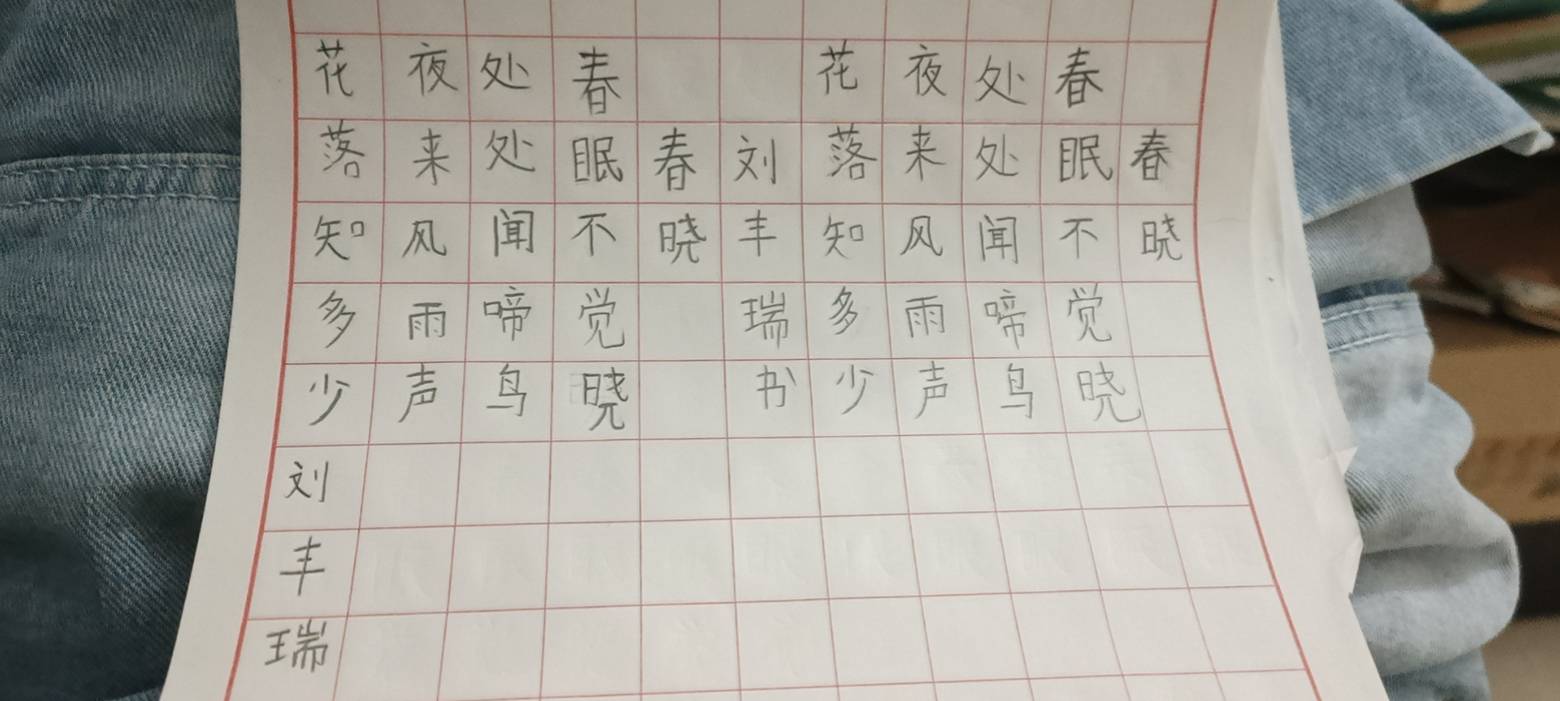 春晓
春眠不觉晓
处处闻啼鸟
夜来风雨声
花落知多少
刘丰瑞书
春晓
春眠不觉晓
处处闻啼鸟
夜来风雨声
花落知多少刘丰瑞